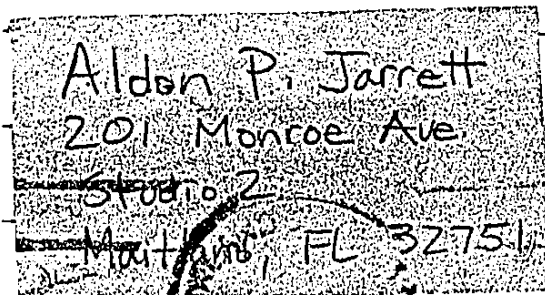 Aldon P. Jarrett
201 Monroe Ave.
Studio 2
Maitland, FL 32751